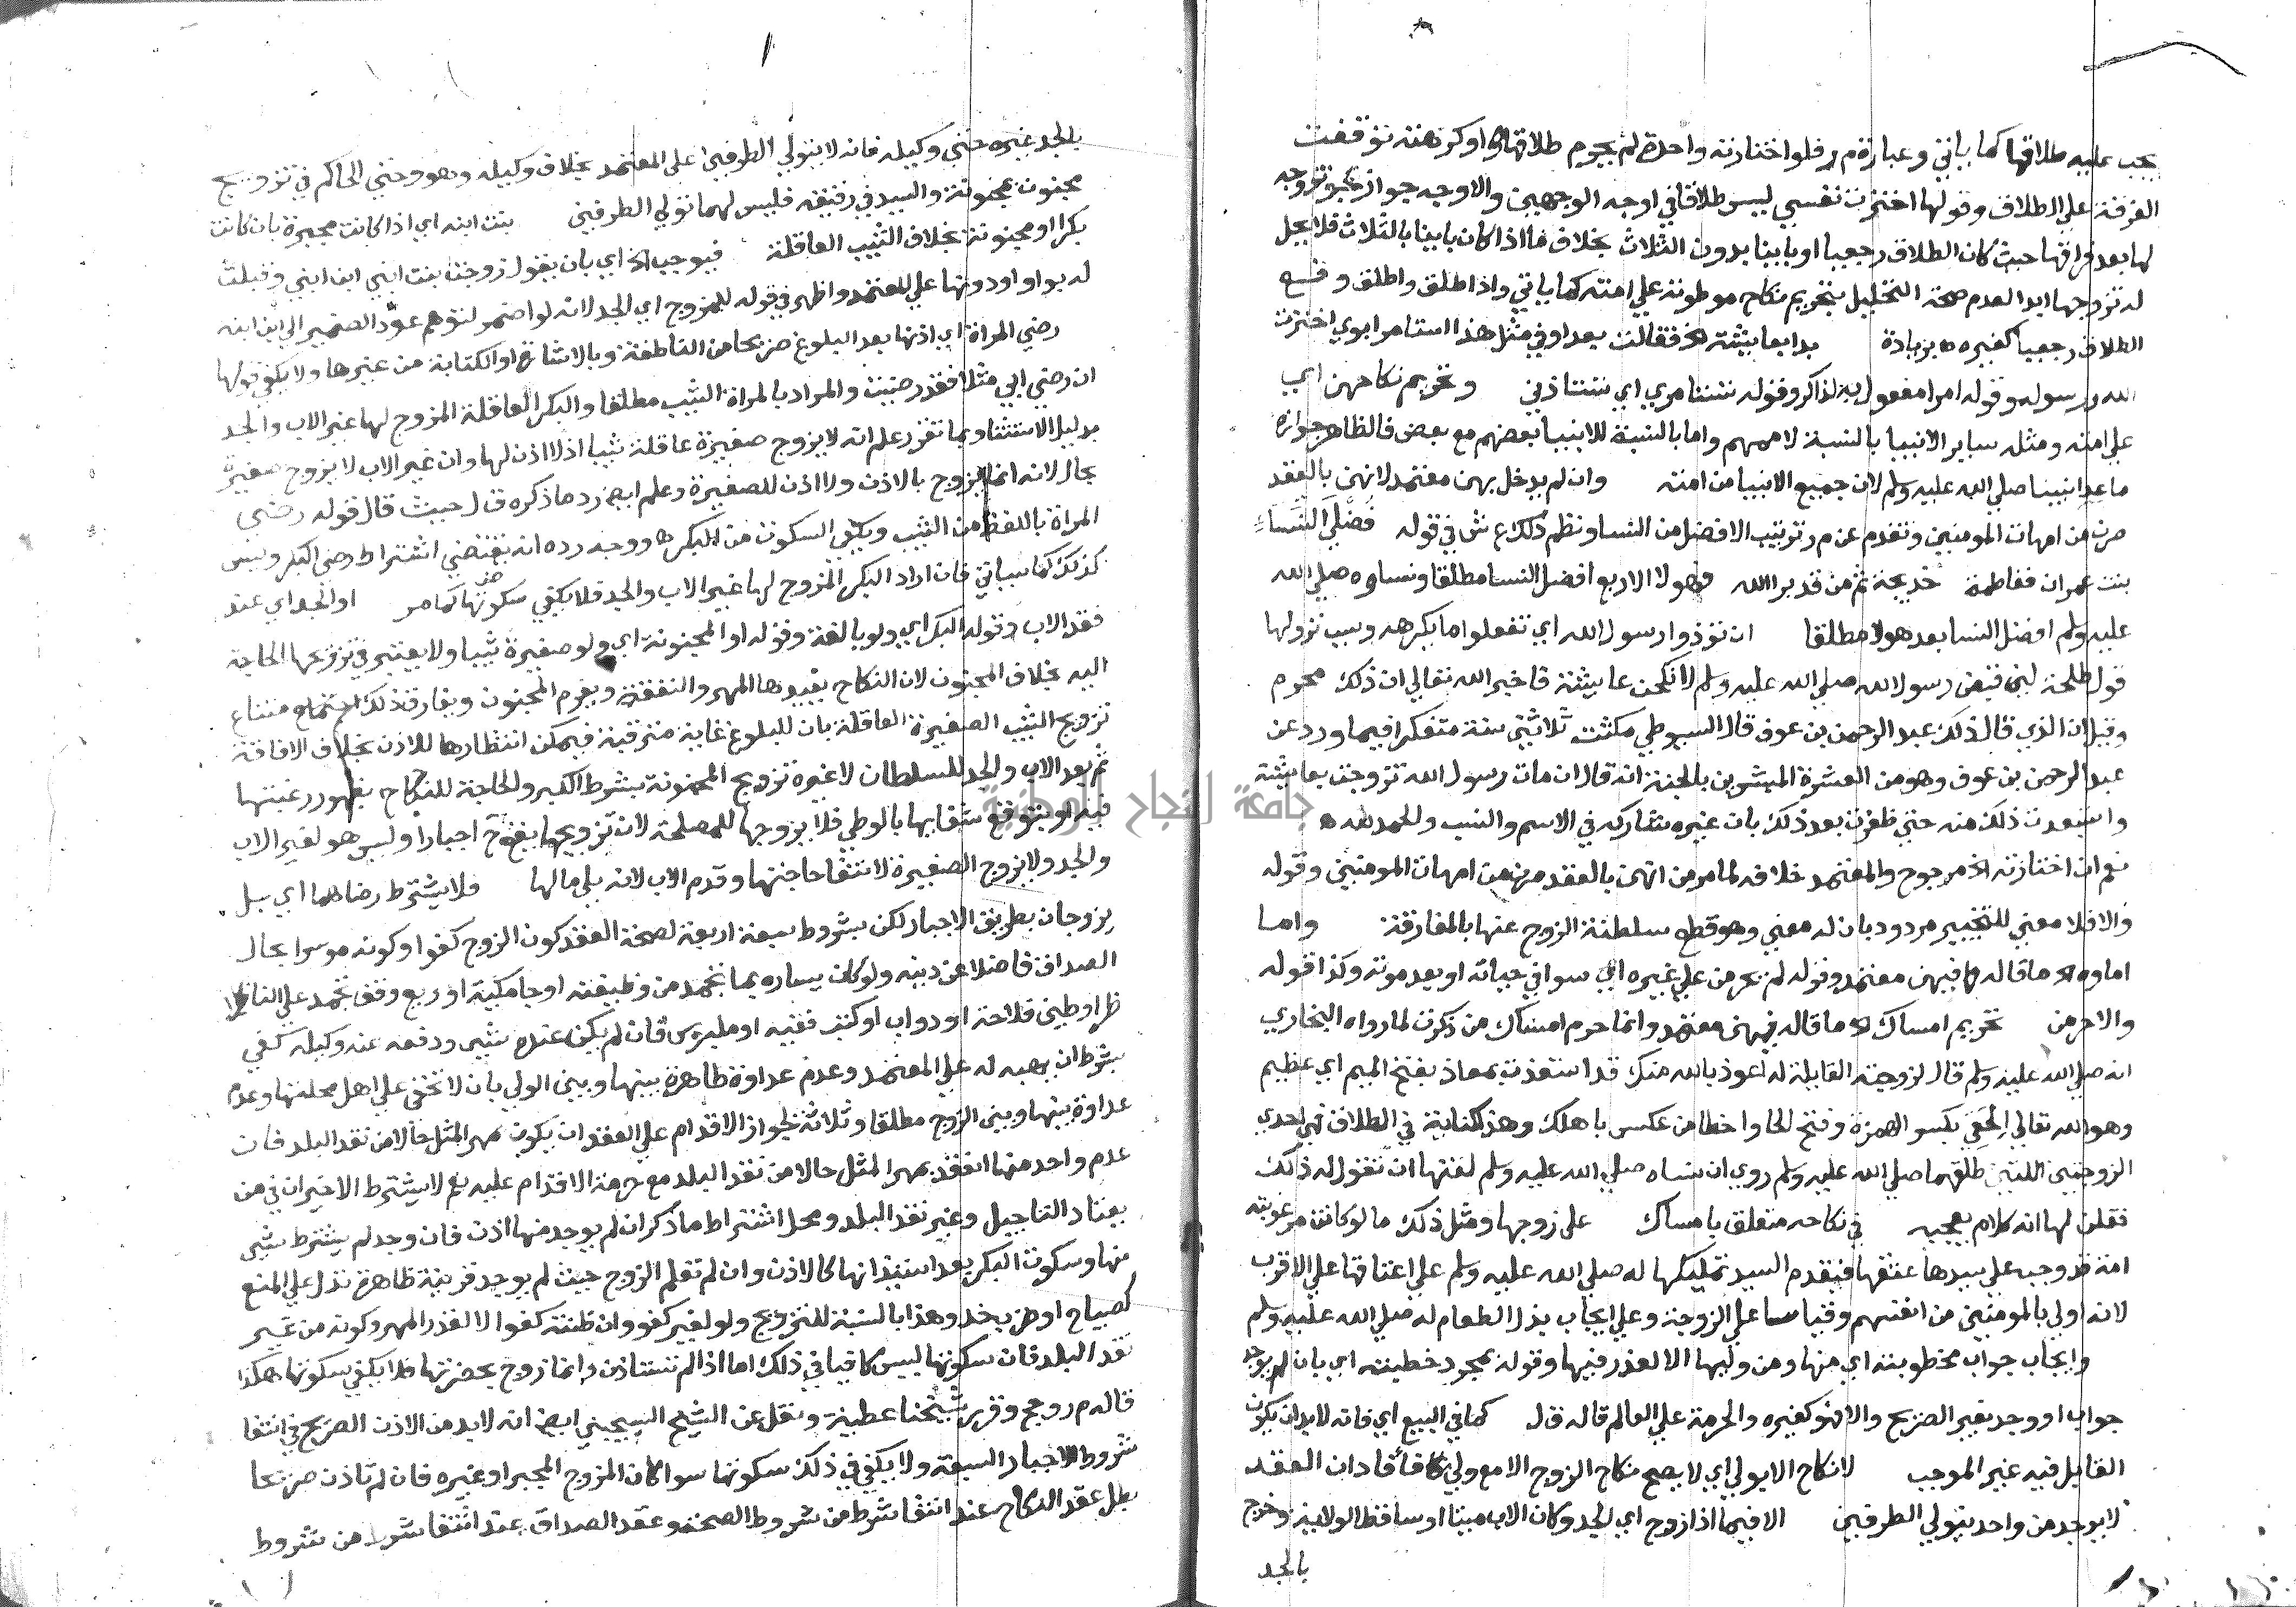 يجب عليه طلاقها كما ياتي وعبارة م ر فلو اختارته واحدة لم يحرم طلاقها او كرهته توقفت
الفرقة علي الطلاق وقولها اخترت نفسي ليس طلاقا في اوجه الوجهين والاوجه جواز تزوجه
لها بعد فراقها حيث كان الطلاق رجعيا او باينا بدون الثلاث بخلاف ما اذا كان باينا بالثلاث فلا يحل
له تزوجها ابدا لعدم صحة التحليل بتحريم نكاح موطوته علي امته كما ياتي واذا طلق واطلق وقع
الطلاق رجعيا كغيره ه بزيادة بدا بعايشة الخ فقالت يعد او في مثل هذا استامر ابوي اخترت
الله ورسوله وقوله امرا مفعول به لذاكر وقوله تستامري اي تستاذني وتحريم نكاحهن اي
علي امته ومثله ساير الانبيا بالنسبة لاممهم واما بالنسبة للانبيا بعضهم مع بعض فالظاهر جوازه
ما عدا نبينا صلي الله عليه وسلم لان جميع الانبيا من امته وان لم يدخل بهن معتمد لانهن بالعقد
صرن من امهات المومنين وتقدم عن م ر ترتيب الافضل من النسا ونظم ذلك ع ش في قوله فضلي النساء
بنت عمران ففاطمة خديجة ثم من قد برا الله وهولا الاربع افضل النسا مطلقا ونساوه صلي الله
عليه وسلم افضل النسا بعد هولا مطلقا ان توذوا رسول الله اي تفعلوا ما يكرهه وسبب نزولها
قول طلحة لين قبض رسول الله صلي الله عليه وسلم لانكحن عايشة فاخبر الله تعالي ان ذلك محرم
وقيل ان الذي قال ذلك عبد الرحمن بن عوف قال السيوطي مكثت ثلاثين سنة متفكرا فيما ورد عن
عبد الرحمن بن عوف وهو من العشرة المبشرين بالجنة انه قال ان مات رسول الله تزوجت بعايشة
واستبعدت ذلك منه حتي ظفرت بعد ذلك بان غيره شاركه في الاسم والنسب والحمد لله ه
نعم ان اختارته الخ مرجوح والمعتمد خلافه لما مر من انهن بالعقد صرن من امهات المومنين وقوله
والا فلا معني للتخيير مردود بان له معني وهو قطع سلطنة الزوج عنها بالمفارقة واما
اماوه الخ ما قاله فيهن معتمد وقوله لم يحرمن علي غيره اي سوا في حياته او بعد موته وكذا قوله
والا حرمن تحريم امساك الخ ما قاله فيهن معتمد وانما حرم امساك من ذكرت لما رواه البخاري
انه صلي الله عليه وسلم قال لزوجته القايلة له اعوذ بالله منك قد استعذت بمعاذ بفتح الميم اي عظيم
وهو الله تعالي الحقي بكسر الهمزة وفتح الحا واخطا من عكس باهلك وهذا كناية في الطلاق فهي احدي
الزوجتين اللتين طلقهما صلي الله عليه وسلم روي ان نساه صلي الله عليه وسلم لقنها ان تقول له ذلك
فقلن لها انه كلام يعجبه في نكاحه متعلق بامساك علي زوجها ومثل ذلك ما لو كانت مرغوبته
امة فيجب علي سيدها عتقها فيقدم السيد تمليكها له صلي الله عليه وسلم علي اعتاقها علي الاقرب
لانه اولي بالمومنين من انفسهم وقياسا علي الزوجة وعلي ايجاب بذل الطعام له صلي الله عليه وسلم
وايجاب جواب مخطوبته اي منها ومن وليها الا لعذر فيها وقوله بمجرد خطبته اي بان لم يوجد
جواب او وجد بغير الصريح والا فهو كغيره والحرمة علي العالم قاله ق ل كما في البيع اي فانه لا بد ان يكون
القابل فيه غير الموجب لا نكاح الا بولي اي لا يصح نكاح الزوج الا مع ولي فافاد ان العقد
لا يوجد من واحد يتولي الطرفين الا فيما اذا زوج اي الجد وكان الاب ميتا او ساقط الولاية وخرج
بالجد
بالجد غيره حتي وكيله فانه لا يتولي الطرفين علي المعتمد بخلاف وكيله وهو وحتي الحاكم في تزويج
مجنون بمجنونة والسيد في رقيقه فليس لهما تولي الطرفين بنت ابنه اي اذا كانت مجبرة بان كانت
بكرا او مجنونة بخلاف الثيب العاقلة فيوجب الخ اي بان يقول زوجت بنت ابني ابن ابني وقبلت
له بواو او دونها علي المعتمد واظهر في قوله للمزوج اي الجد لانه لو اضمر لتوهم عود الضمير الي ابن ابنه
رضي المراة اي اذنها بعد البلوغ صريحا من الناطقة وبالاشارة او الكتابة من غيرها ولا يكفي قولها
ان رضي ابي مثلا فقد رضيت والمراد بالمراة الثيب مطلقا والبكر العاقلة المزوج لها غير الاب والجد
بدليل الاستثنا وبما تقرر علم انه لا يزوج صغيرة عاقلة ثيبا اذ لا اذن لها وان غير الاب لا يزوج صغيرة
بحال لانه انما يزوج بالاذن ولا اذن للصغيرة وعلم ايضا رد ما ذكره ق ل حيث قال قوله رضي
المراة باللفظ من الثيب ويكفي السكوت من البكر ه ووجه رده انه يقتضي اشتراط رضي البكر وليس
كذلك كما سياتي فان اراد البكر المزوج لها غير الاب والجد فلا يكفي سكوتها كما مر او الجد اي عند
فقد الاب وقوله البكر اي ولو بالغة وقوله او المجنونة اي ولو صغيرة ثيبا ولا يعتبر في تزويجها الحاجة
اليه بخلاف المجنون لان النكاح يفيدها المهر والنفقة ويغرم المجنون ويفارق ذلك امتناع
تزويج الثيب الصغيرة العاقلة بان للبلوغ غاية مترقبة فيمكن انتظارها للاذن بخلاف الافاقة
ثم بعد الاب والجد للسلطان لا غيره تزويج المجنونة بشرط الكبر والحاجة للنكاح بظهور رغبتها
فيه او بتوقع شفايها بالوطي فلا يزوجها للمصلحة لان تزويجها يقع اجبارا وليس هو لغير الاب
والجد ولا يزوج الصغيرة لانتفا حاجتها وقدم الاب لانه يلي مالها فلا يشترط رضاهما اي بل
يزوجان بطريق الاجبار لكن بشروط سبعة اربعة لصحة العقد كون الزوج كفوا وكونه موسرا بحال
الصداق فاضلا عن دينه ولو كان يساره بما تجمد من وظيفته او جامكية او ريع وقف تجمد علي الناظر
او طين فلاحة او دواب او كتب فقيه فان لم يكن عنده شي ودفعه عنه وكيله كفي
بشرط ان يهبه له علي المعتمد وعدم عداوة ظاهرة بينها وبين الولي بان لا تخفي علي اهل محلتها وعدم
عداوة بينها وبين الزوج مطلقا وثلاثة لجواز الاقدام علي العقد ان يكون مهر المثل حالا من نقد البلد فان
عدم واحد منها انعقد بمهر المثل حالا من نقد البلد مع حرمة الاقدام عليه نعم لا يشترط الاخيران في من
يعتاد التاجيل وغير نقد البلد ومحل اشتراط ما ذكر ان لم يوجد منها اذن فان وجد لم يشترط شي
منها وسكوت البكر بعد استيذانها كالاذن وان لم تعلم الزوج حيث لم يوجد قرينة ظاهرة تدل علي المنع
كصياح او ضرب خد وهذا بالنسبة للتزويج ولو لغير كفو وان ظنته كفوا لا لقدر المهر وكونه من غير
نقد البلد فان سكوتها ليس كافيا في ذلك اما اذا لم تستاذن وانما زوج بحضرتها فلا يكفي سكوتها هكذا
قاله م ر وحج وقرر شيخنا عطية ونقل عن الشيخ السجيني ايضا انه لا بد من الاذن الصريح في انتفا
شروط الاجبار السبعة ولا يكفي في ذلك سكوتها سوا كان المزوج المجبر او غيره فان لم تاذن صريحا
بطل عقد النكاح عند انتفا شرط من شروط الصحة وعقد الصداق عند انتفا شرط من شروط
جامعة النجاح الوطنية